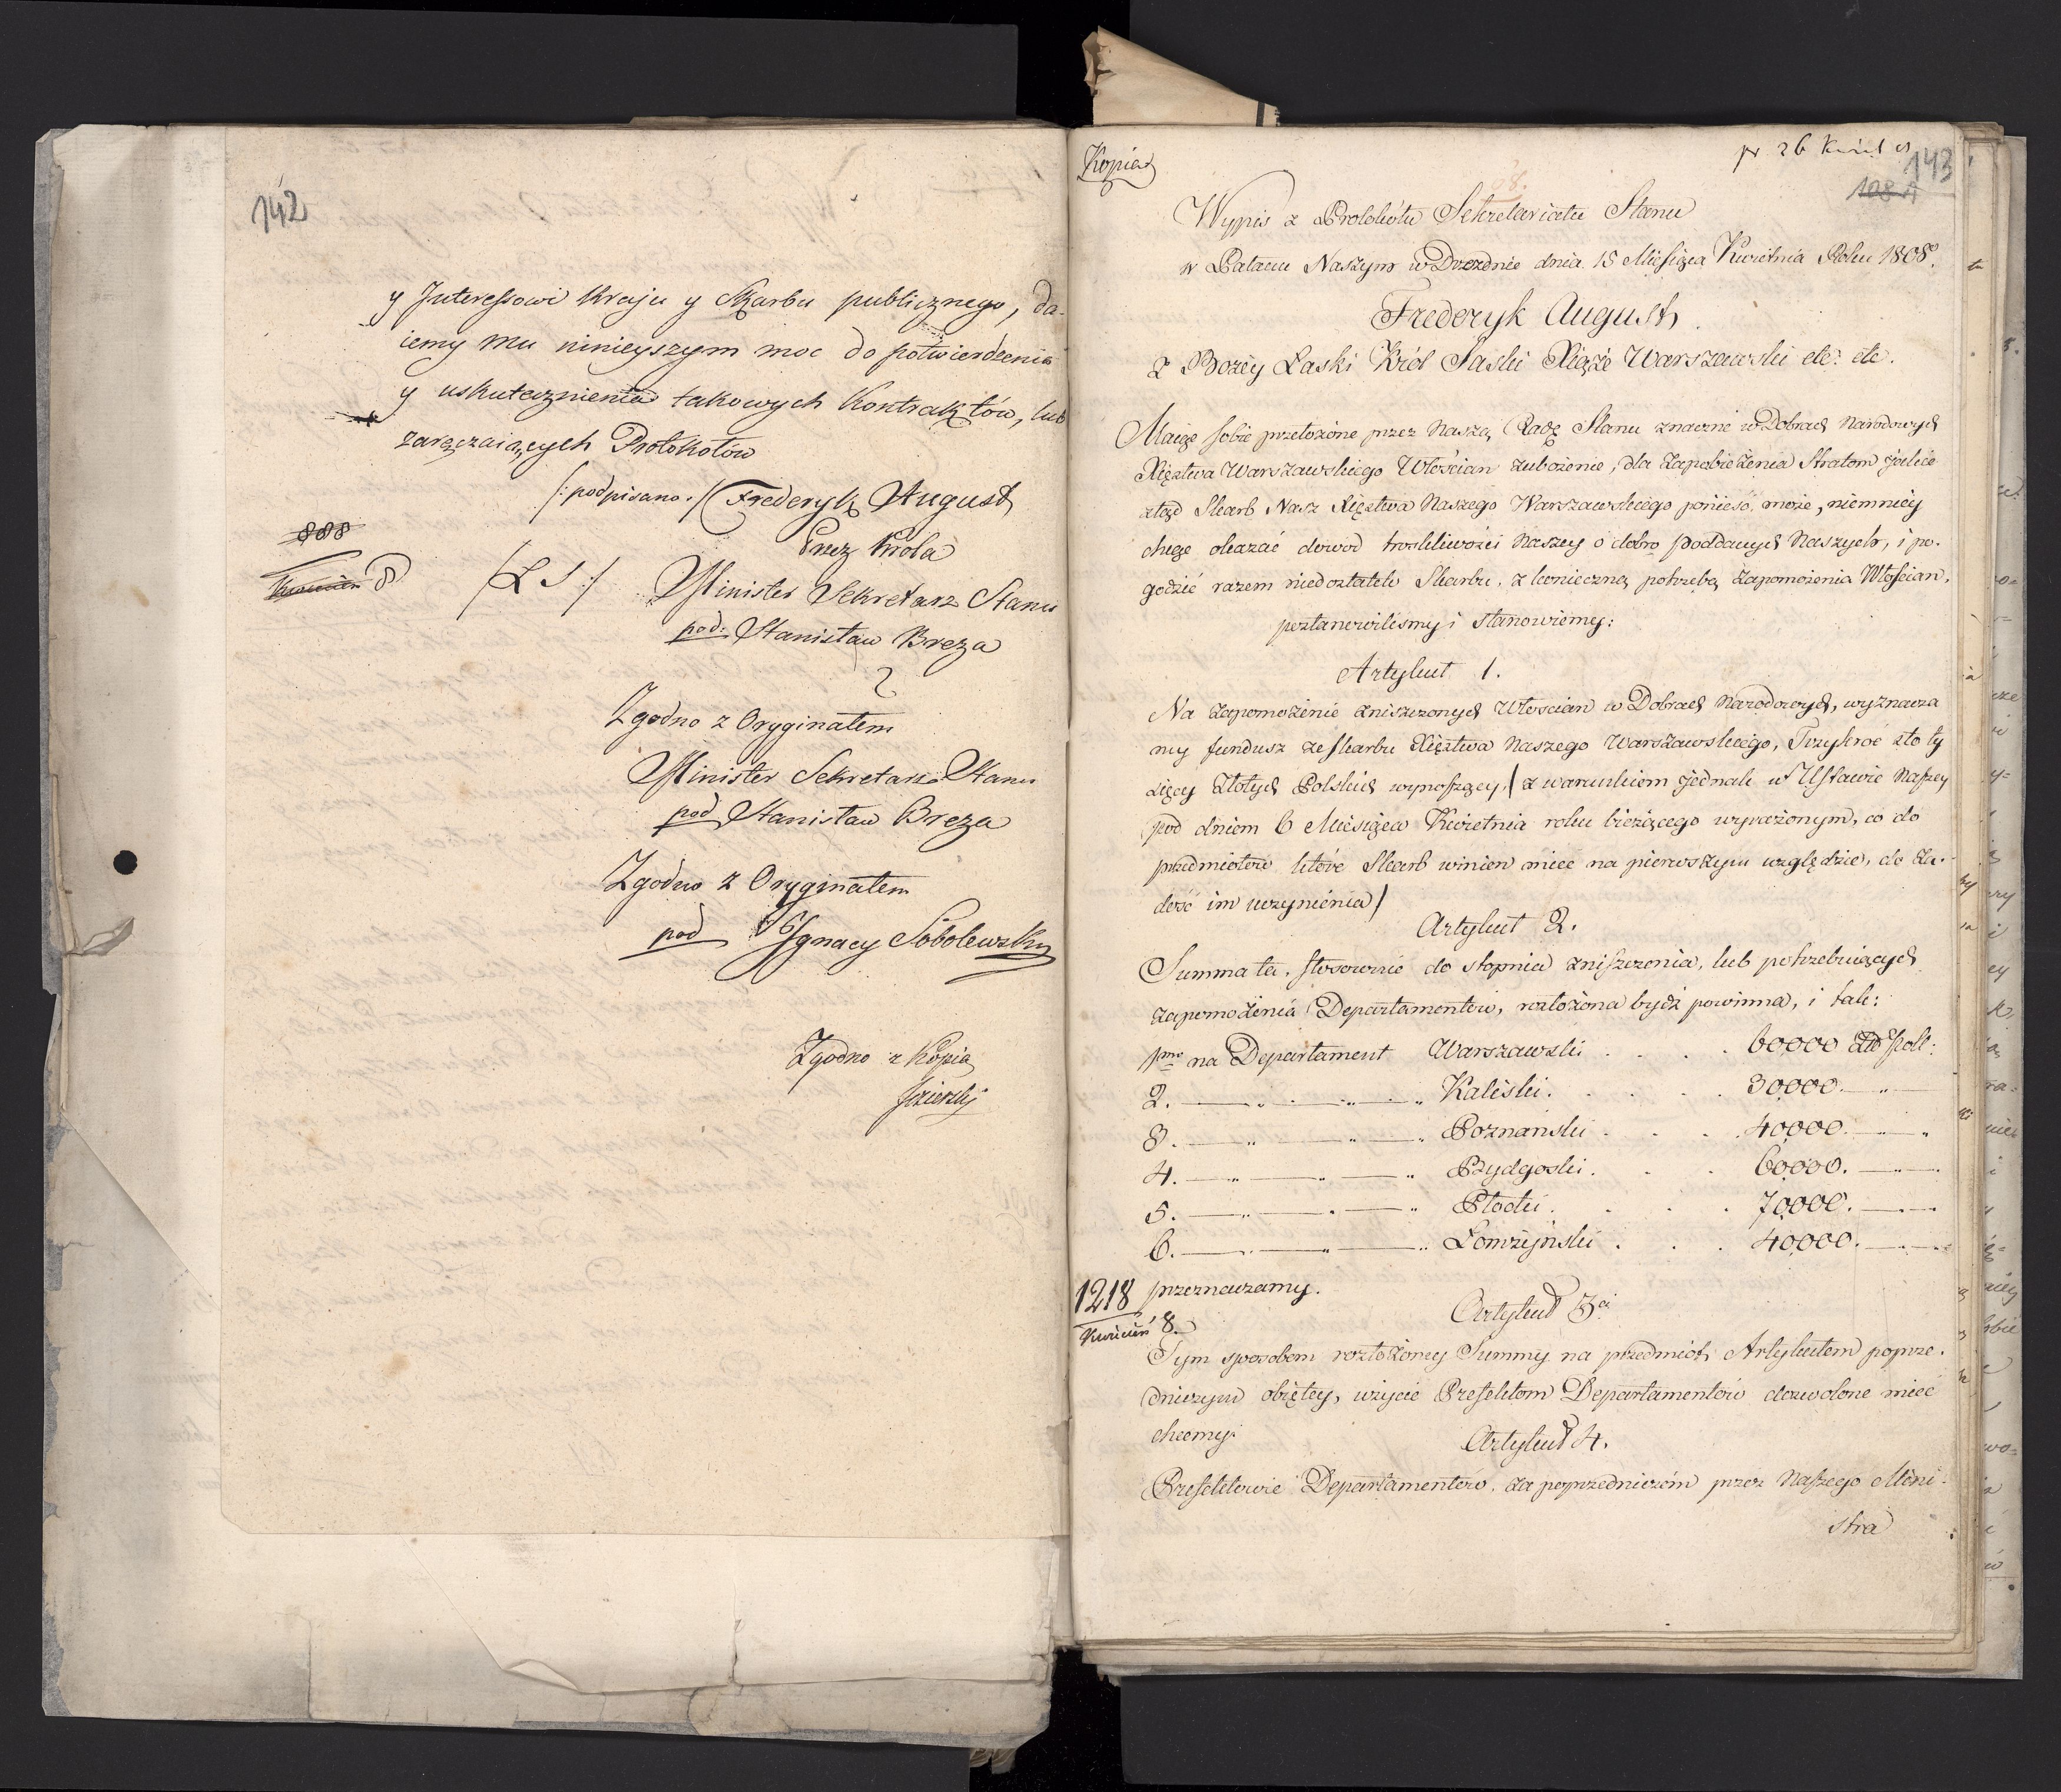 142
y Interessowi Kraju y Skarbu publicznego, da-
iemy mu ninieyszym moc do potwierdzenia
y uskutecznienia takowych Kontraktów, lub
zaręczaiących Protokołów
/:podpisano:/ Frederyk August
Przez Króla
888
Kwiecień 8
/LS:/ Minister Sekretarz Stanu
pod: Stanisław Breza
Zgodno z Oryginałem
Minister Sekretarz Stanu
pod Stanisław Breza
Zgodno z Oryginałem
pod Ignacy Sobolewski
Zgodno z Kopią
Kopia
pr 26 Kwiet
143
108 A
Wypis z Protokółu Sekretariatu Stanu
w Pałacu Naszym w Dreznie dnia 15 Miesiąca Kwietnia Roku 1808.
Frederyk August
z Bożey Łaski Król Saski Xiąże Warszawski etc: etc.
Maiąc sobie przełożone przez Naszą Radę Stanu znaczne w Dobrach Narodowych
Xięztwa Warszawskiego Włościan zubożenie, dla zapobieżenia Stratom jakie
ztąd Skarb Nasz Xięztwa Naszego Warszawskiego ponieść może, niemniey
chcąc okazać dowód troskliwości Naszey o dobro Poddanych Naszych, i po-
godzić razem niedostatek Skarbu, z konieczną potrzebą zapomożenia Włościan,
postanowiliśmy i stanowiemy:
Artykuł 1.
Na zapomożenie zniszczonych Włościan w Dobrach Narodowych, wyznacza
my fundusz ze Skarbu Xięztwa Naszego Warszawskiego, Trzykroć sto ty
sięcy Złotych Polskich wynoszący, / z warunkiem jednak w Ustawie Naszey
pod dniem 6 Miesiąca Kwietnia roku bieżącego wyrażonym, co do
przedmiotów które Skarb winien mieć na pierwszym względzie, do za-
dość im uczynienia /
Artykuł 2.
Summa ta, stosownie do stopnia zniszczenia, lub potrzebuiących
zapomożenia Departamentów, rozłożona bydź powinna, i tak:
1mo na Departament Warszawski . . . . 60000 Zło Pols:
2. —„—„—„ Kaliski . . . . 30000.—„
3. —„—„—„ Poznański . . . . 40000.—„—„
4. —„—„—„ Bydgoski . . . . 60000.—„—
5. —„—„—„ Płocki . . . . 70000.—„—
6. —„—„—„ Łomżyński . . . . 40000.—„—
1218
Kwiecień 8.
przeznaczamy.
Artykuł 3ci
Tym sposobem rozłożoney Summy na przedmiot Artykułem poprze-
dniczym obiętey, użycie Prefektom Departamentów dozwolone mieć
chcemy.
Artykuł 4.
Prefektowie Departamentów, za poprzedniczém przez Naszego Mini-
stra